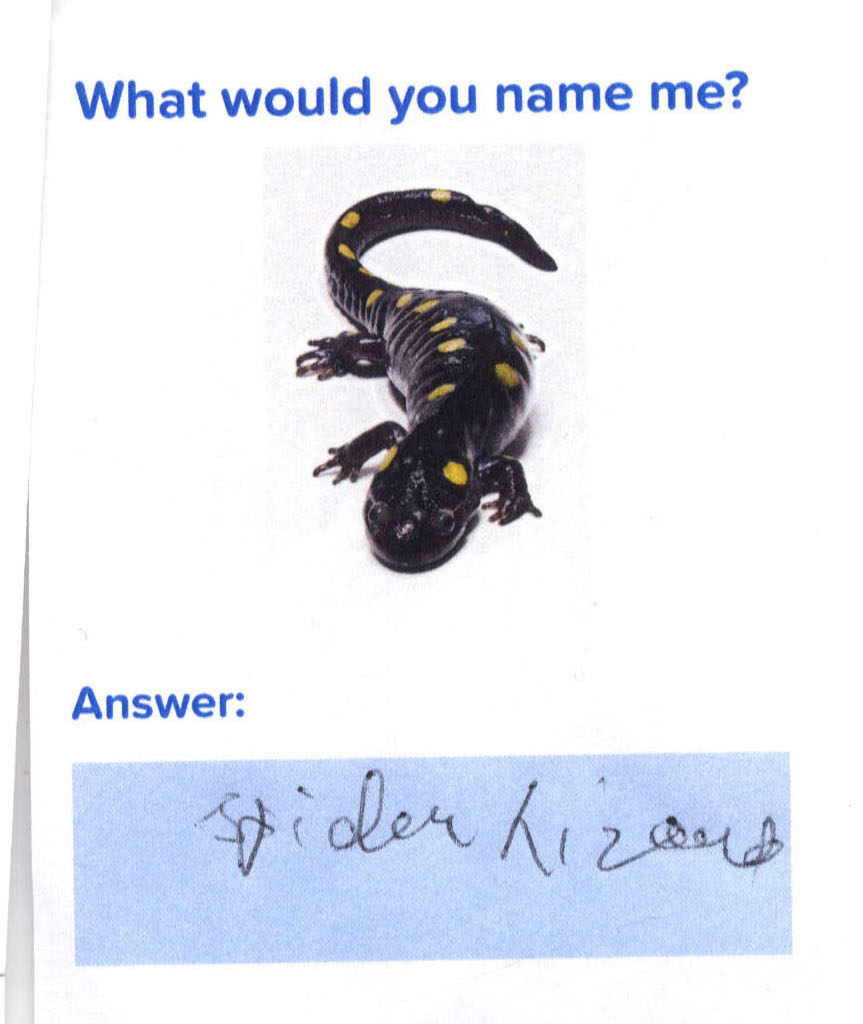 What would you name me?
Answer:
spider Lizard